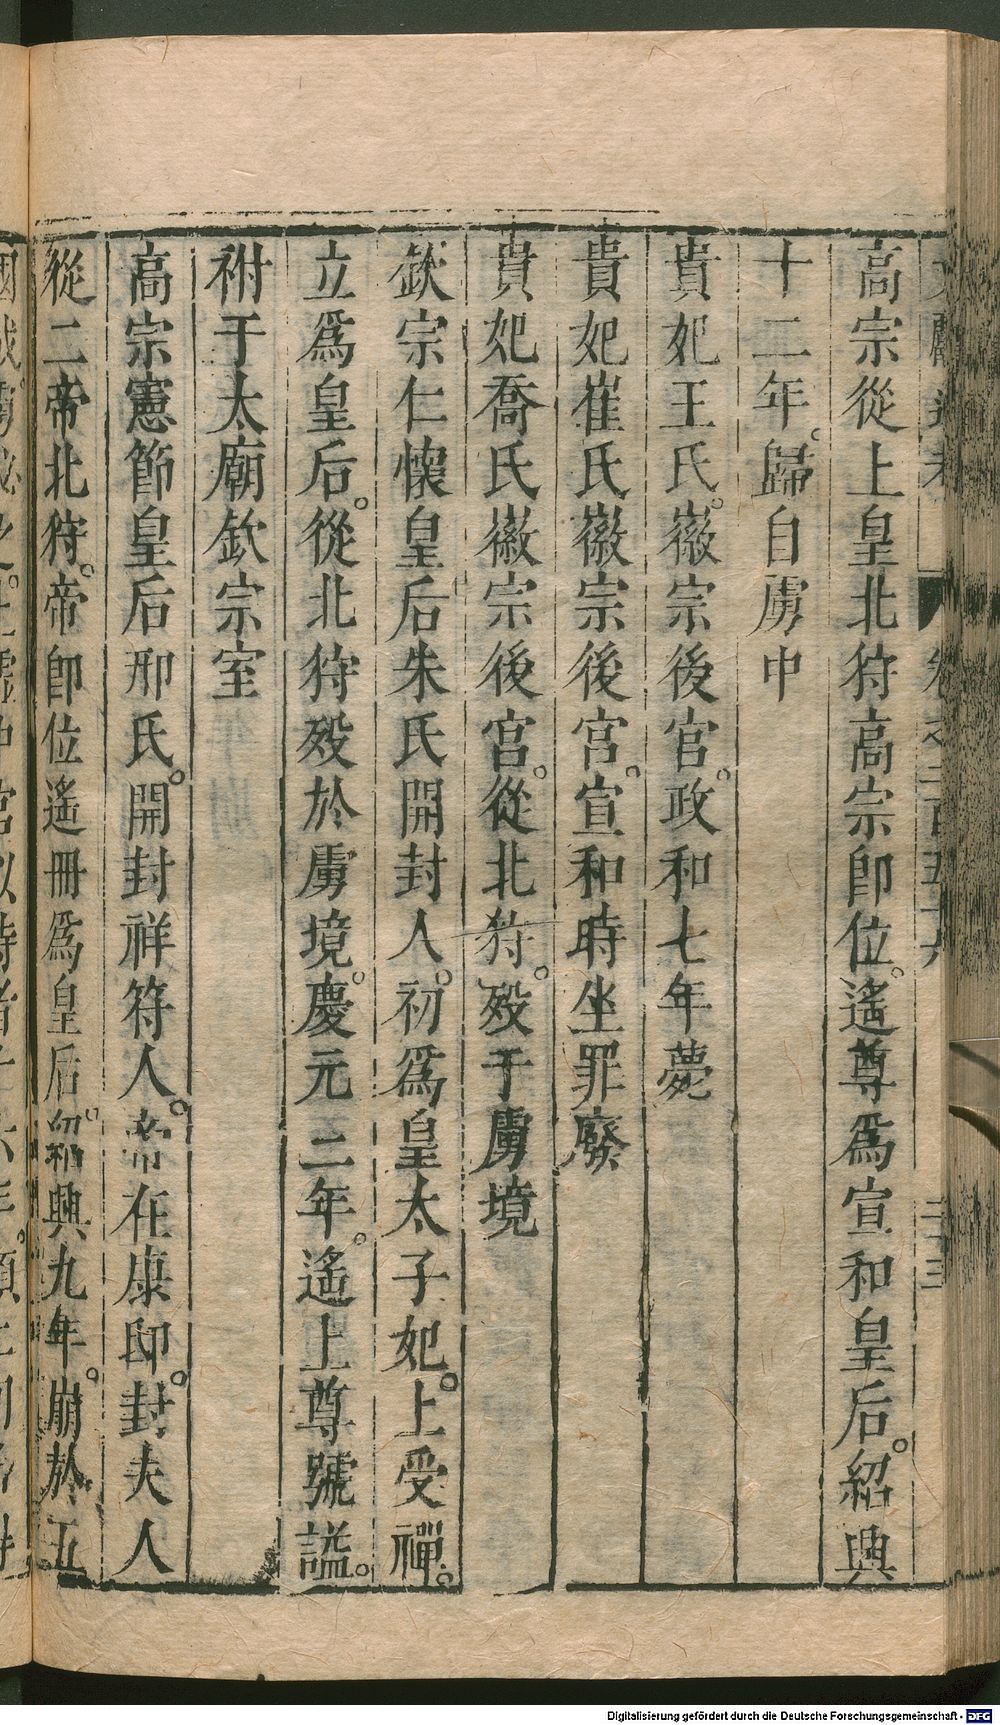 高宗從上皇北狩高宗即位。遙尊爲宣和皇后。紹興
十二年。歸自虜中
貴妃王氏。徽宗後宫。政和七年薨
貴妃崔氏徽宗後宫。宣和時坐罪廢
貴妃喬氏徽宗後宫。從北狩。歿于虜境
欽宗仁懷皇后朱氏開封人。初爲皇太子妃。上受禪。
立爲皇后。從北狩歿於虜境。慶元二年。遙上尊號謚。
祔于太廟欽宗室
高宗憲節皇后邢氏。開封祥符人。帝在康邸。封夫人
從二帝北狩。帝即位遙冊爲皇后。紹興九年。崩於五
Digitalisierung gefördert durch die Deutsche Forschungsgemeinschaft - DFG